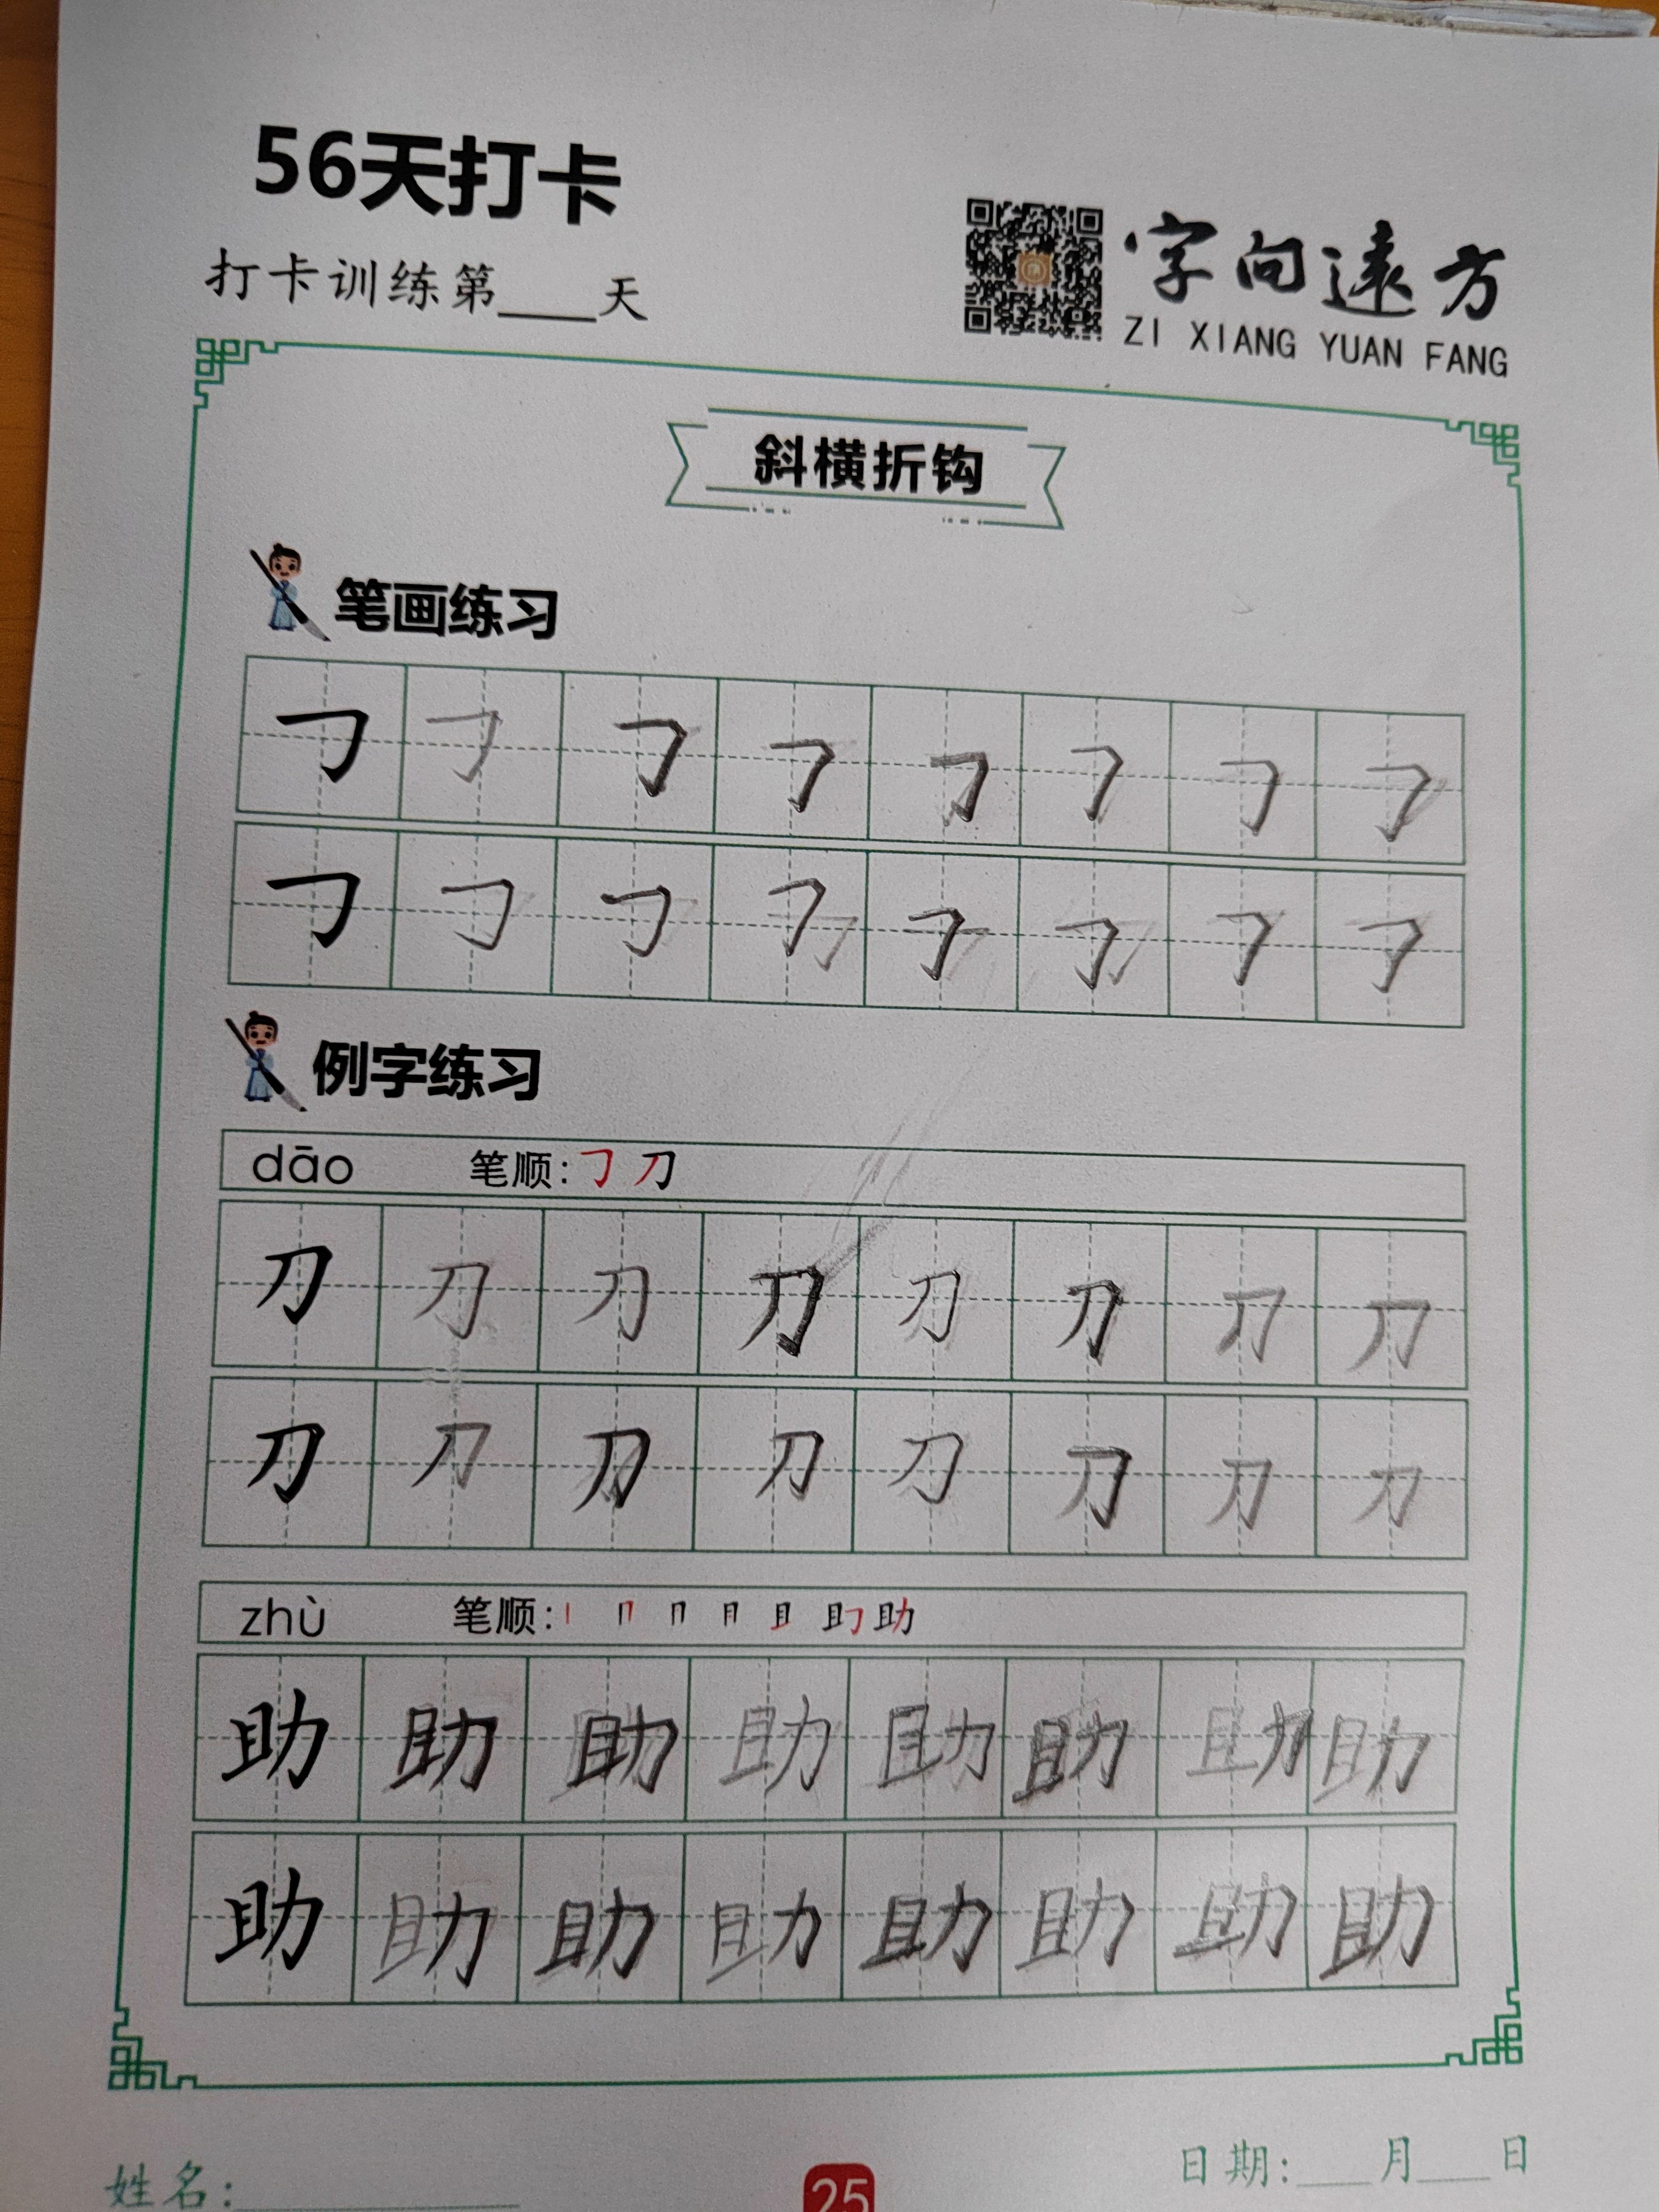 56天打卡
打卡训练第____天
字向遠方
ZI XIANG YUAN FANG
斜横折钩
笔画练习
㇆ ㇆ ㇆ ㇆ ㇆ ㇆ ㇆ ㇆
㇆ ㇆ ㇆ ㇆ ㇆ ㇆ ㇆ ㇆
例字练习
dāo 笔顺:㇆ 刀
刀 刀 刀 刀 刀 刀 刀 刀
刀 刀 刀 刀 刀 刀 刀 刀
zhù 笔顺:丨 𠃍 月 且 助
助 助 助 助 助 助 助 助
助 助 助 助 助 助 助 助
姓名:____
25
日期:___月___日